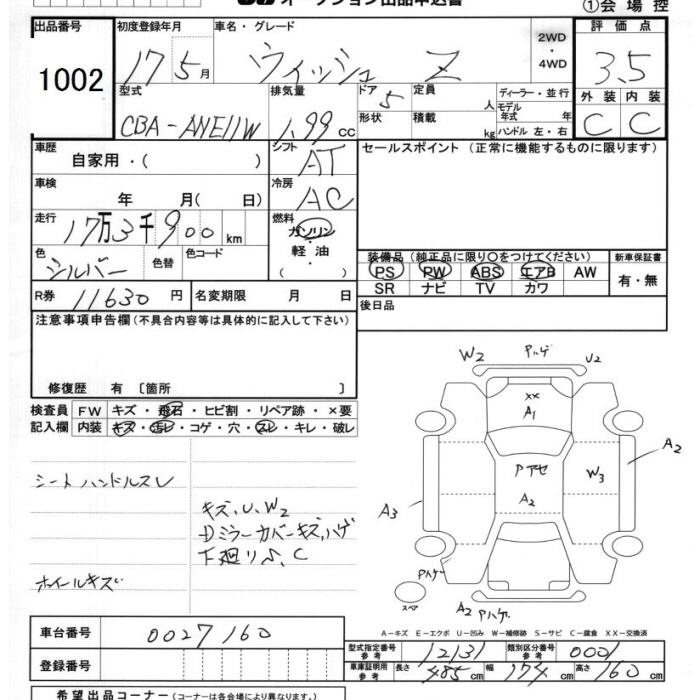 オークション出品申込書
①会場控
出品番号 1002
初度登録年月 17 5月
車名・グレード ウィッシュ Z
2WD・4WD
評価点 3.5
外装 C 内装 C
型式 CBA-ANE11W
排気量 1.99 cc
ドア 5
定員 人
形状
積載 kg
ディーラー・並行
モデル年式 年
ハンドル 左・右
車歴 自家用・( )
シフト AT
セールスポイント(正常に機能するものに限ります)
車検 年 月(日)
冷房 AC
走行 17万3千900km
燃料 ガソリン・軽油・( )
色 シルバー 色替 色コード
装備品(純正品に限り○をつけてください)
新車保証書 有・無
PS PW ABS エアB AW
SR ナビ TV カワ
R券 11630円 名変期限 月 日
後日品
注意事項申告欄(不具合内容等は具体的に記入して下さい)
修復歴 有〔箇所 〕
検査員記入欄
FW キズ・飛石・ヒビ割・リペア跡・×要
内装 キズ・汚レ・コゲ・穴・スレ・キレ・破レ
シートハンドルスレ
キズ,U,W2
ミラーカバーキズ,ハゲ
下廻りS,C
ホイールキズ
W2 Pハゲ U2
XX
A1
A2
Pアセ
W3
A2
A3
Pハゲ
スペア
A2 Pハゲ
A-キズ E-エクボ U-凹み W-補修跡 S-サビ C-腐食 XX-交換済
車台番号 0027160
型式指定番号参考 12131 類別区分番号参考 0001
登録番号
車庫証明用参考 長さ 485cm 幅 174cm 高さ 160cm
希望出品コーナー(コーナーは各会場により異なります。)